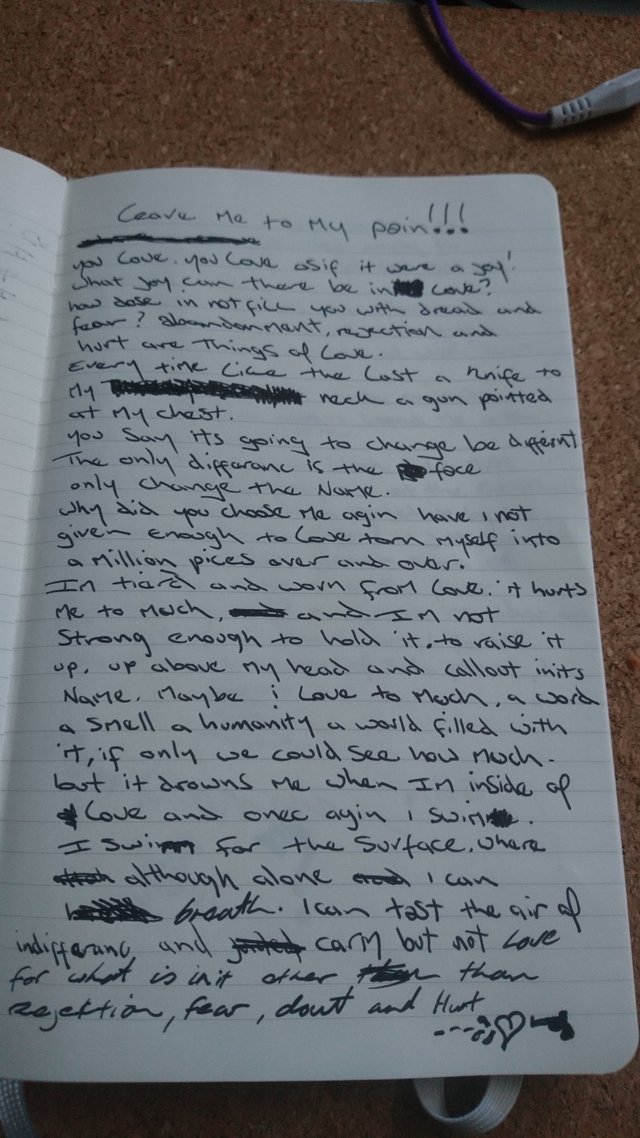 Leave Me to My pain!!!
you Love. you Love asif it were a joy!
what joy can there be in Love?
how dose in not fill you with dread and
fear? abandonment, rejection and
hurt are Things of Love.
Every time Like the Last a knife to
My neck a gun pointed
at My chest.
you Say its going to change be differnt
The only differanc is the face
only change the Name.
why did you choose Me agin have i not
given Enough to Love torn Myself into
a Million pices over and over.
Im tiard and worn from Love. it hurts
Me to Much, and Im not
Strong enough to hold it. to raise it
up. up above My head and callout inits
Name. Maybe i Love to Much, a word
a smell a humanity a world filled with
it, if only we could see how Much.
but it drowns Me when Im inside of
Love and onec agin i swim.
I swim for the Surface. where
although alone i can
breath. I can tast the air of
indifferanc and carm but not Love
for what is init other than
Rejektion, fear, dout and Hurt